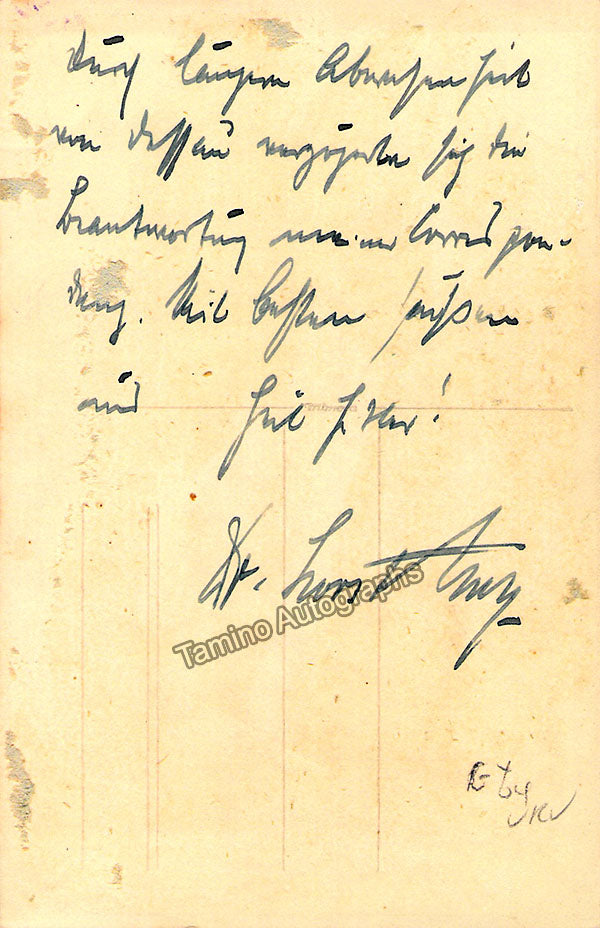 Durch längere Abwesenheit
von Dessau verzögerte sich die
Beantwortung meiner Correspon-
denz. Mit besten Grüßen
und Heil Hitler!
Dr. Horst
Tamino Autographs